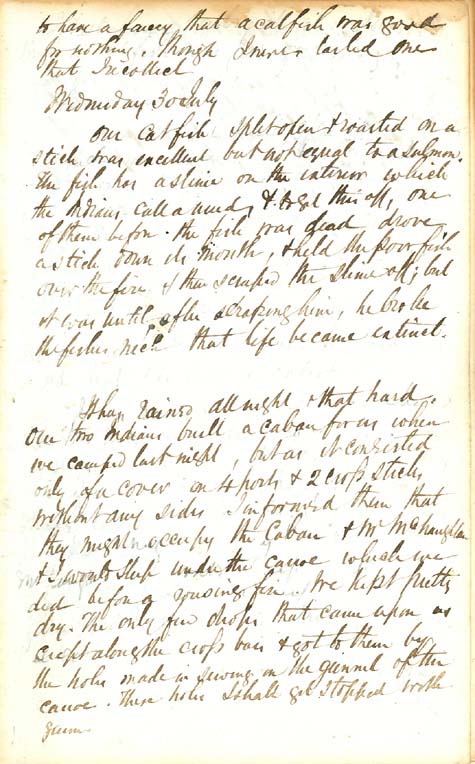 to have a fancy that a catfish was good
for nothing. Though I never tasted one
that I recollect
Wednesday 30 July
Our Catfish split open & roasted on a
stick was excellent but not equal to a salmon.
The fish has a slime on the interior which
the Indians call a mud, & to get this off, one
of them before the fish was dead drove
a stick down its mouth, & held the poor fish
over the fire & then scraped the slime off; but
it was until after scraping him, he broke
the fishes neck that life became extinct.
It has rained all night & that hard.
Our two Indians built a caban for us when
we camped last night, but as it consisted
only of a cover on 4 posts & 2 cross sticks
without any sides I informed them that
they might occupy the Caban & Mr McNaughton
& I would sleep under the canoe which we
did before a rousing fire. We kept pretty
dry. The only few drops that came upon us
crept along the cross bars & got to them by
the holes made in sewing on the gunnel of the
canoe. These holes I shall get stopped with
gum.